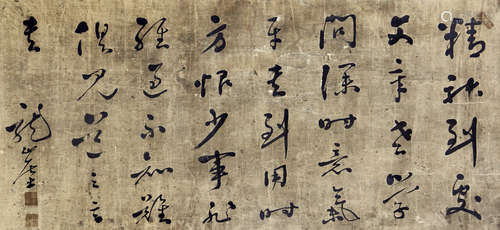 精神到處
文章老學
問深時意氣
平書到用時
方恨少事非
經過不知難
俱見道之言
書